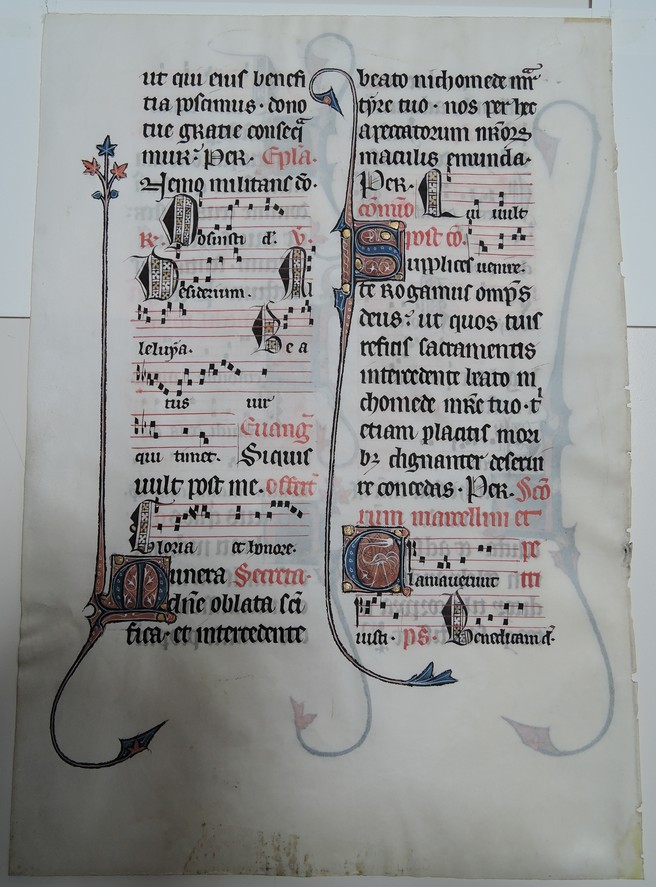 ut qui eius benefi
tia poscimus. dono
tue gratie conseq̄
mur: Per. Epl̄a.
Nemo militans c̄o.
R. Posuisti d̄. V̄.
Desiderium. All
leluya. Bea
tus uir
qui timet. Euang̅
Siquis
uult post me. offert̄
Gloria et honore.
Munera Secreta.
dn̄e oblata sc̄i
fica. et intercedente
beato nichomede mr̄
tyre tuo. nos per hec
a peccatorum nr̄ors
maculis emunda.
Per. Qui uult
cōmūo
post cō.
Supplices uenire.
te Rogamus omp̄s
deus: ut quos tuis
reficis sacramentis
intercedente beato ni
chomede mr̄e tuo. t'
etiam placitis mori
bꝫ dignanter deserui
re concedas. Per. Sc̄o
rum marcellini et
pe
Clamauerunt tri
iusti. ps. Benedicam d̄.